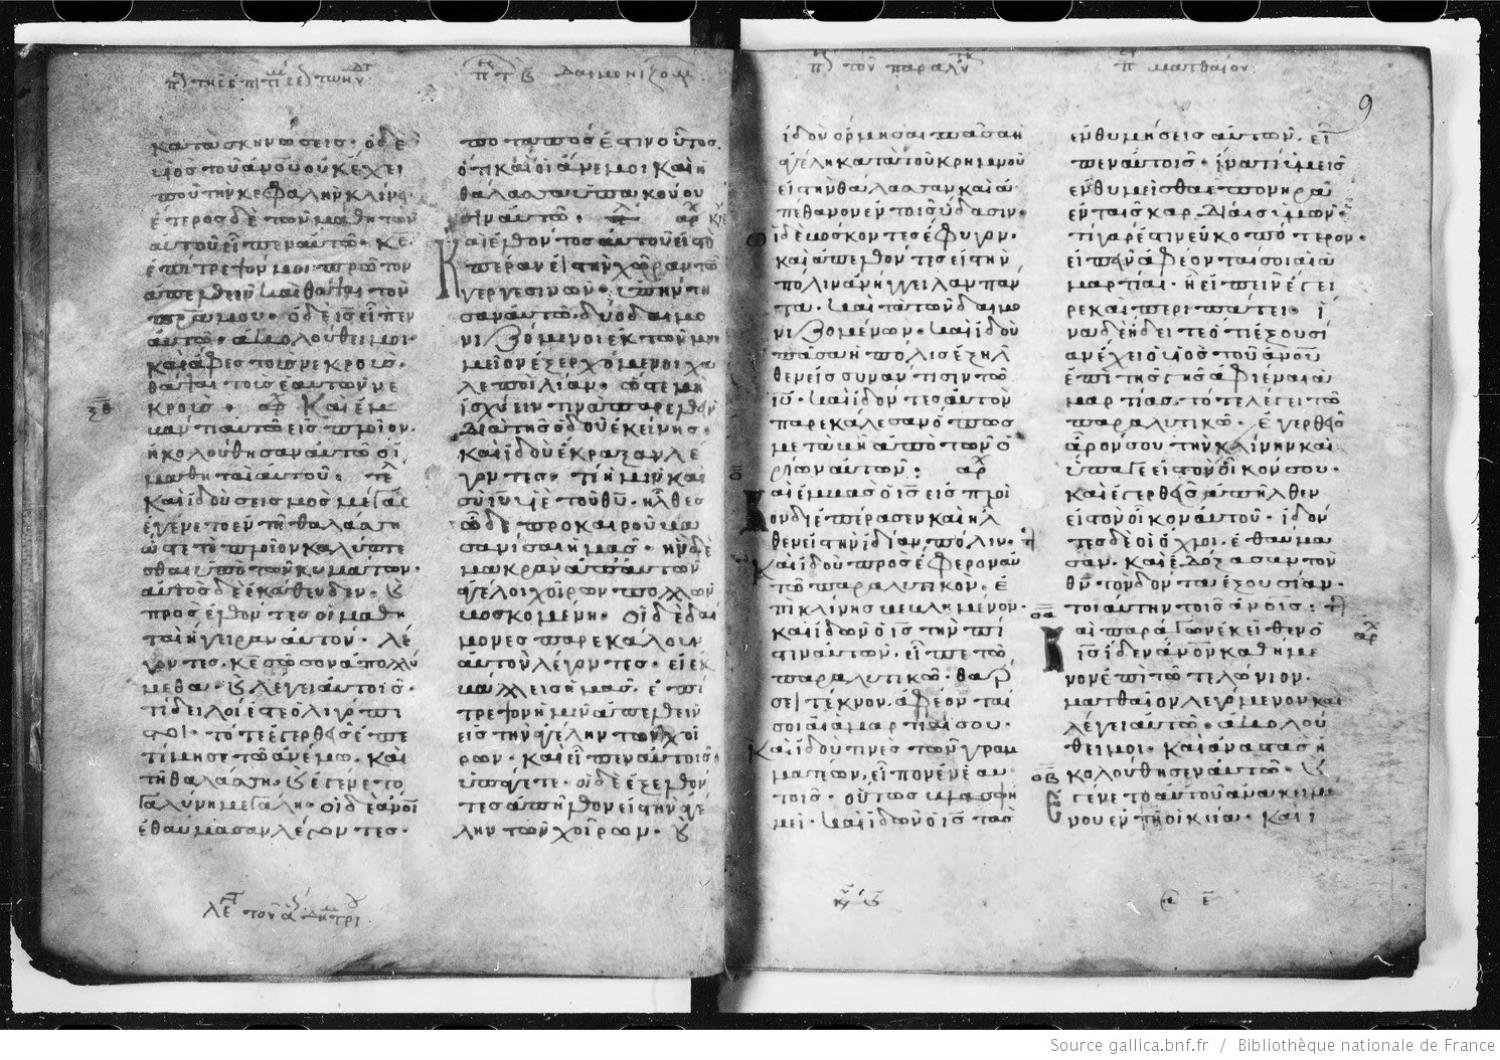 κατασκηνώσεις· ὁ δὲ
υἱὸς τοῦ ἀνου οὐκ ἔχει
ποῦ τὴν κεφαλὴν κλίνη·
ἕτερος δὲ τῶν μαθητῶν
αὐτοῦ εἶπεν αὐτῶ· κε
ἐπίτρεψόν μοι πρῶτον
ἀπελθεῖν καὶ θάψαι τὸν
πρα μου· ὁ δὲ ις εἶπεν
αὐτῶ· ἀκολούθει μοι·
καὶ ἄφες τοὺς νεκροὺς
θάψαι τοὺς ἑαυτῶν νε
κρούς· αρχ Καὶ ἐμ
βάντι αὐτῶ εἰς πλοῖον·
ἠκολούθησαν αὐτῶ οἱ
μαθηταὶ αὐτοῦ· τε
Καὶ ἰδοὺ σεισμὸς μέγας
ἐγένετο ἐν τῆ θαλάσση
ὥστε τὸ πλοῖον καλύπτε
σθαι ὑπὸ τῶν κυμάτων·
αὐτὸς δὲ ἐκάθευδεν· καὶ
προσελθόντες οἱ μαθη
ταὶ ἤγειραν αὐτὸν· λέ
γοντες· κε σῶσον ἀπολλύ
μεθα· καὶ λέγει αὐτοῖς·
τί δειλοί ἐστε ὀλιγόπι
στοι· τότε ἐγερθεὶς ἐπε
τίμησε τῶ ἀνέμω· καὶ
τῆ θαλάσση· καὶ ἐγένετο
γαλήνη μεγάλη· οἱ δὲ ἀνοι
ἐθαύμασαν λέγοντες·
ποταπός ἐστιν οὗτος·
ὅτι καὶ οἱ ἄνεμοι καὶ ἡ
θάλασσα ὑπακούου
σιν αὐτῶ·
Καὶ ἐλθόντος αὐτοῦ εἰς τὸ
πέραν εἰς τὴν χώραν τῶν
γεργεσινῶν· ὑπήντη
σαν αὐτῶ· δύο δαιμο
νιζόμενοι ἐκ τῶν μνη
μείων ἐξερχόμενοι χα
λεποὶ λίαν· ὥστε μὴ
ἰσχύειν τινὰ παρελθεῖν
διὰ τῆς ὁδοῦ ἐκείνης·
Καὶ ἰδοὺ ἔκραξαν λέ
γοντες· τί ἡμῖν καὶ
σὺ ιυ υἱὲ τοῦ θυ· ἦλθες
ὧδε πρὸ καιροῦ βα
σανίσαι ἡμᾶς· ἦν δὲ
μακρὰν ἀπ' αὐτῶν
ἀγέλη χοίρων πολλῶν
βοσκομένη· οἱ δὲ δαί
μονες παρεκάλουν
αὐτὸν λέγοντες· εἰ ἐκ
βάλλεις ἡμᾶς· ἐπί
τρεψον ἡμῖν ἀπελθεῖν
εἰς τὴν ἀγέλην τῶν χοί
ρων· καὶ εἶπεν αὐτοῖς·
ὑπάγετε· οἱ δὲ ἐξελθόν
τες ἀπῆλθον εἰς τὴν ἀγέ
λην τῶν χοίρων· καὶ
9
ἰδοὺ ὥρμησαι πᾶσα ἡ
ἀγέλη κατὰ τοῦ κρημνοῦ
εἰς τὴν θάλασσαν καὶ ἀ
πέθανον ἐν τοῖς ὕδασιν·
οἱ δὲ βόσκοντες ἔφυγον·
καὶ ἀπελθόντες εἰς τὴν
πόλιν ἀνήγγειλαν πάν
τα· καὶ τὰ τῶν δαιμο
νιζομένων· καὶ ἰδοὺ
πᾶσα ἡ πόλις ἐξῆλ
θεν εἰς συνάντησιν τῶ
ιυ· καὶ ἰδόντες αὐτὸν
παρεκάλεσαν ὅπως
μεταβῆ ἀπὸ τῶν ὁ
ρίων αὐτῶν· αρχ
Καὶ ἐμβὰς ὁ ις εἰς πλοῖ
ον διεπέρασεν καὶ ἦλ
θεν εἰς τὴν ἰδίαν πόλιν·
Καὶ ἰδοὺ προσέφερον αὐ
τῶ παραλυτικὸν· ἐ
πὶ κλίνης βεβλημένον·
καὶ ἰδὼν ὁ ις τὴν πί
στιν αὐτῶν· εἶπε τῶ
παραλυτικῶ· θάρ
σει τέκνον· ἀφέονταί
σοι αἱ ἁμαρτίαι σου·
Καὶ ἰδού τινες τῶν γραμ
ματέων, εἶπον ἐν ἑαυ
τοῖς· οὗτος βλασφη
μεῖ· καὶ ἰδὼν ὁ ις τὰς
ἐνθυμήσεις αὐτῶν· εἶ
πεν αὐτοῖς· ἱνατί ὑμεῖς
ἐνθυμεῖσθε πονηρὰ
ἐν ταῖς καρδίαις ὑμῶν·
τί γάρ ἐστιν εὐκοπώτερον·
εἰπεῖν ἀφέονταί σοι αἱ ἁ
μαρτίαι· ἢ εἰπεῖν ἔγει
ρε καὶ περιπάτει· ἵ
να δὲ ἤδειτε ὅτι ἐξουσί
αν ἔχει ὁ υἱὸς τοῦ ἀνου
ἐπὶ τῆς γῆς ἀφιέναι ἁ
μαρτίας· τότε λέγει τῶ
παραλυτικῶ· ἐγερθεὶς
ἆρόν σου τὴν κλίνην καὶ
ὕπαγε εἰς τὸν οἶκόν σου·
καὶ ἐγερθεὶς ἀπῆλθεν
εἰς τὸν οἶκον αὐτοῦ· ἰδόν
τες δὲ οἱ ὄχλοι· ἐθαύμα
σαν· καὶ ἐδόξασαν τὸν
θν· τὸν δόντα ἐξουσίαν·
τοιαύτην τοῖς ἀνοις:
Καὶ παράγων ἐκεῖθεν ὁ
ις εἶδεν ἀνον καθήμε
νον ἐπὶ τὸ τελώνιον·
ματθαῖον λεγόμενον· καὶ
λέγει αὐτῶ· ἀκολού
θει μοι· καὶ ἀναστὰς ἠ
κολούθησεν αὐτῶ· καὶ
ἐγένετο αὐτοῦ ἀνακειμέ
νου ἐν τῆ οἰκία· καὶ ἰ
Source gallica.bnf.fr / Bibliothèque nationale de France